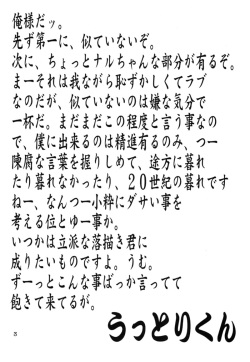 俺様だッ。
先ず第一に、似ていないぞ。
次に、ちょっとナルちゃんな部分が有るぞ。
まーそれは我ながら恥ずかしくてラブ
なのだが、似ていないのは嫌な気分で
一杯だ。まだまだこの程度と言う事なの
で、僕に出来るのは精進有るのみ、つー
陳腐な言葉を握りしめて、途方に暮れ
たり暮れなかったり、20世紀の暮れです
ねー、なんつー小粋にダサい事を
考える位とゆー事か。
いつかは立派な落描き君に
成りたいものですよ。うむ。
ずーっとこんな事ばっか言ってて
飽きて来てるが。
うっとりくん